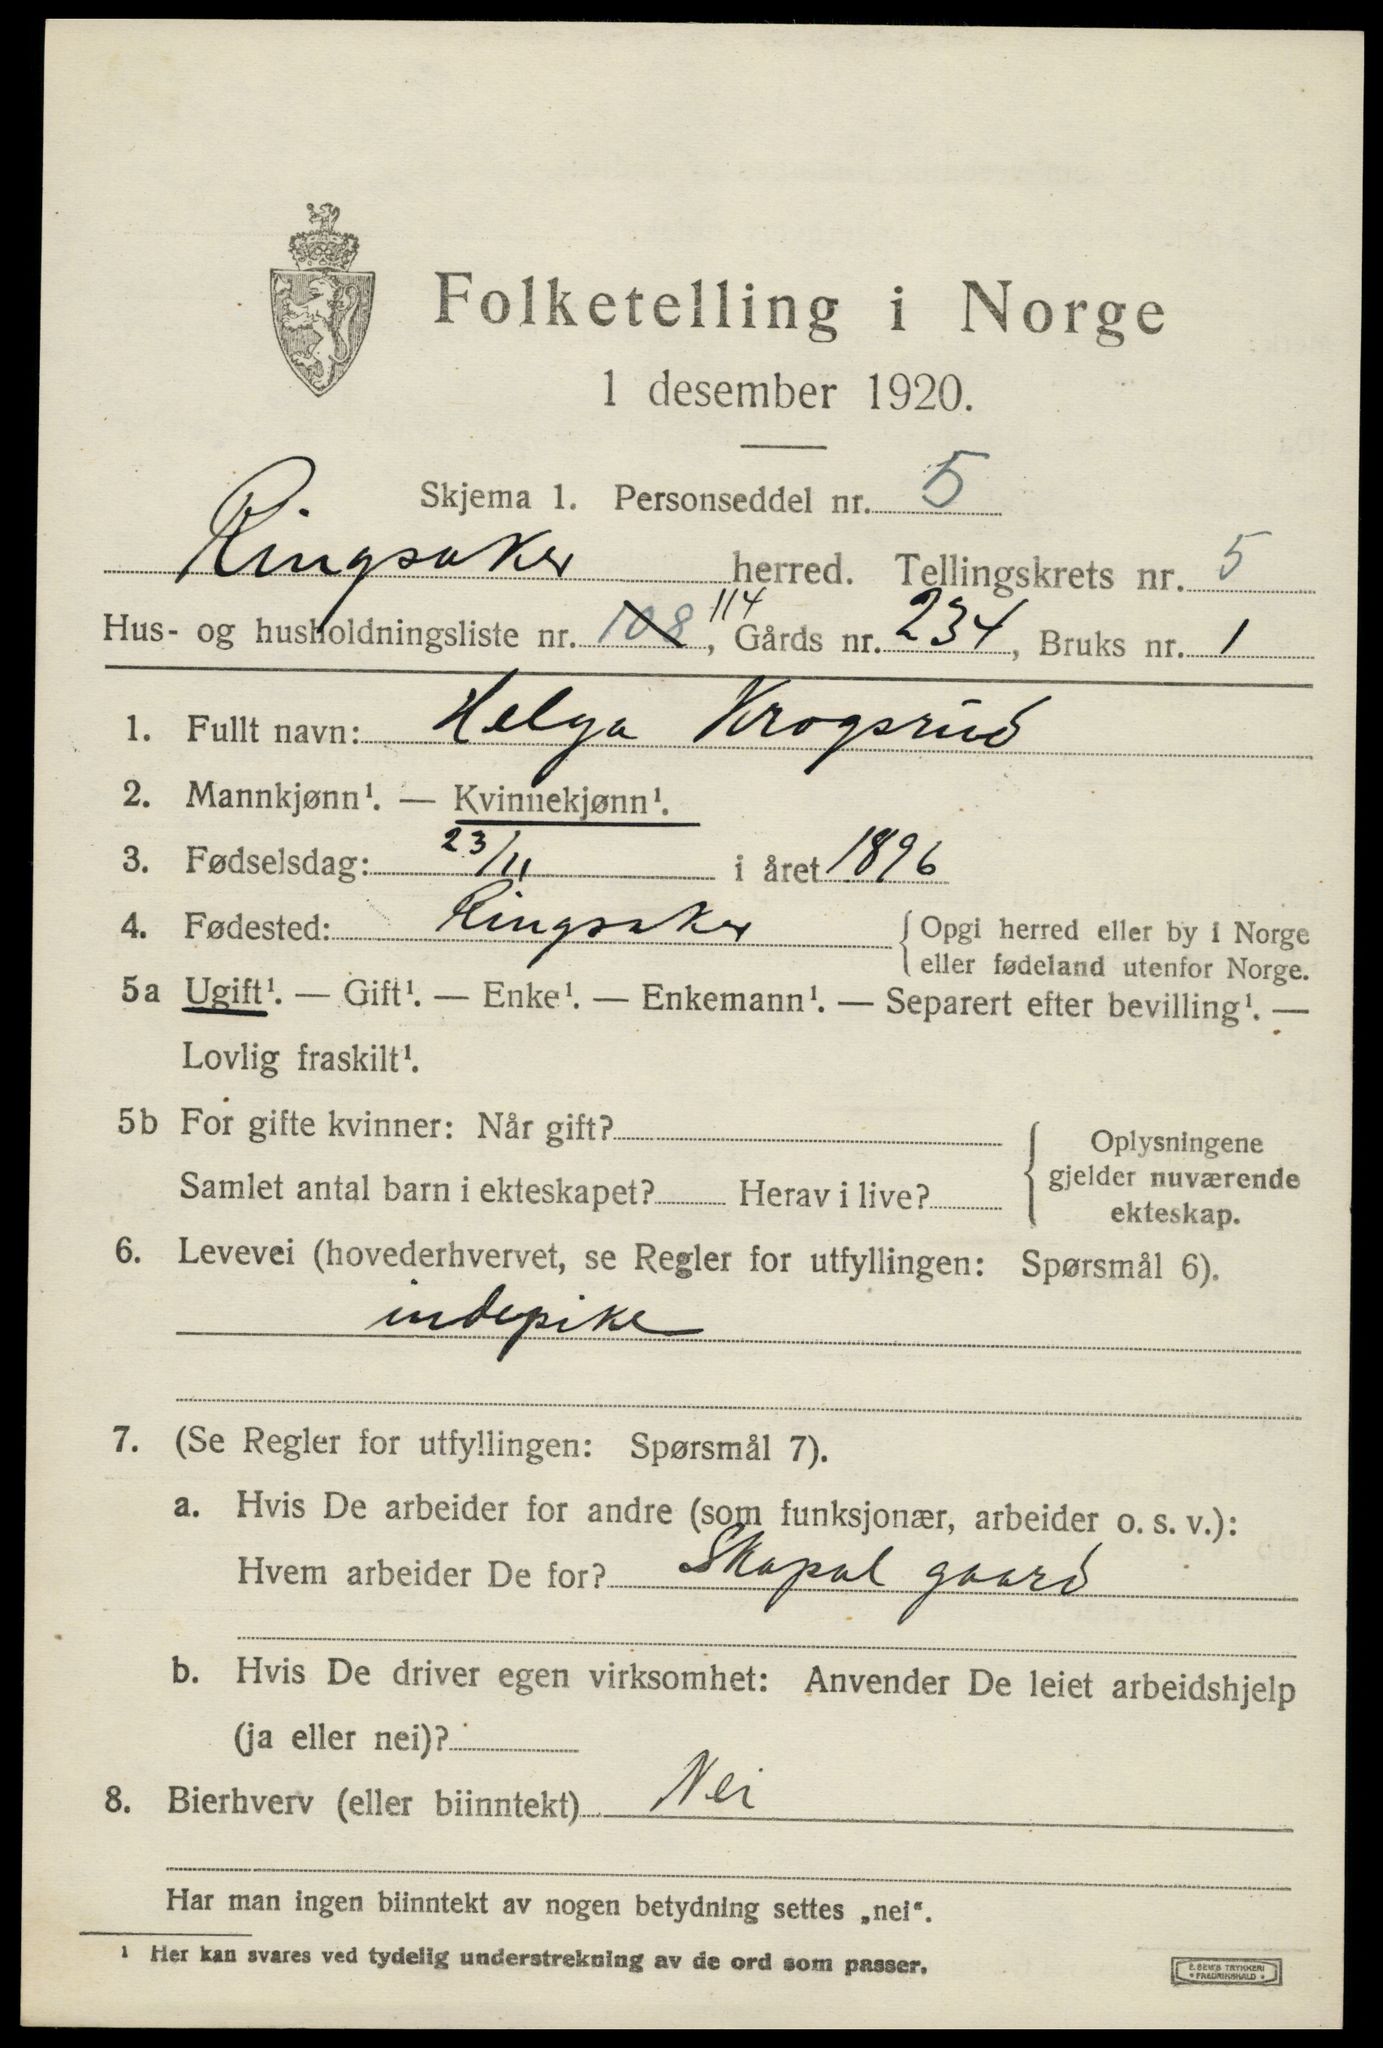 Folketelling i Norge
1 desember 1920.
Skjema 1. Personseddel nr. 5
Ringsaker herred. Tellingskrets nr. 5
Hus- og husholdningsliste nr. 108 114, Gårds nr. 234, Bruks nr. 1
1. Fullt navn: Helga Krogsrud
2. Mannkjønn¹. — Kvinnekjønn¹.
3. Fødselsdag: 23/11 i året 1896
4. Fødested: Ringsaker { Opgi herred eller by i Norge
eller fødeland utenfor Norge.
5a Ugift¹. — Gift¹. — Enke¹. — Enkemann¹. — Separert efter bevilling¹. —
Lovlig fraskilt¹.
5b For gifte kvinner: Når gift?
Samlet antal barn i ekteskapet? Herav i live?
{ Oplysningene
gjelder nuværende
ekteskap.
6. Levevei (hovederhvervet, se Regler for utfyllingen: Spørsmål 6).
indepike
7. (Se Regler for utfyllingen: Spørsmål 7).
a. Hvis De arbeider for andre (som funksjonær, arbeider o. s. v.):
Hvem arbeider De for? Skapal gaard
b. Hvis De driver egen virksomhet: Anvender De leiet arbeidshjelp
(ja eller nei)?
8. Bierhverv (eller biinntekt) Nei
Har man ingen biinntekt av nogen betydning settes „nei“.
¹ Her kan svares ved tydelig understrekning av de ord som passer.
E. SEM'S TRYKKERI
• FREDRIKSHALD •